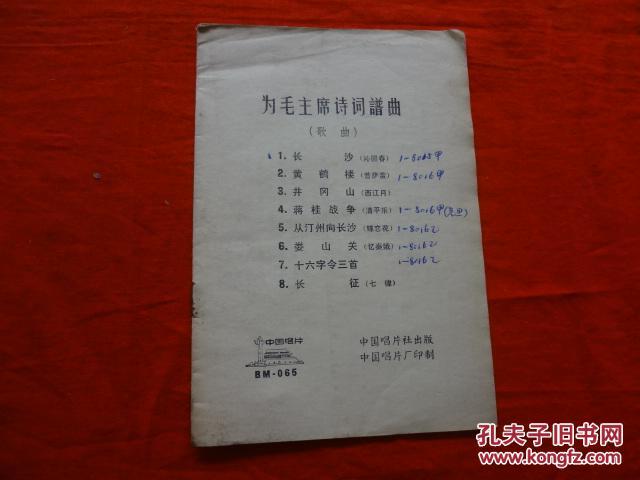 为毛主席诗词譜曲
(歌 曲)
1. 长 沙 (沁园春) 1-8015甲
2. 黄 鹤 楼 (菩萨蛮) 1-8016甲
3. 井 冈 山 (西江月)
4. 蒋 桂 战 争 (清平乐) 1-8016甲
5. 从汀州向长沙 (蝶恋花) 1-8016乙
6. 娄 山 关 (忆秦娥) 1-8016乙
7. 十六字令三首 1-8016乙
8. 长 征 (七 律)
中国唱片
BM-065
中国唱片社出版
中国唱片厂印制
孔夫子旧书网
www.kongfz.com